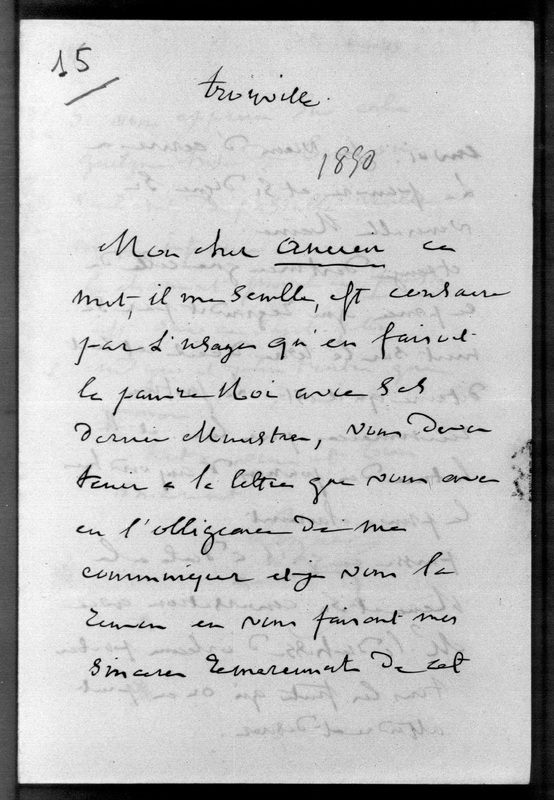 15
trouville.
1890
Mon cher ancien ce
mot, il me semble, est consacré
par l'usage qu'en faisait
le pauvre Roi avec ses
dernier Ministre, vous devez
tenir a la lettre que vous avez
eu l'obligeance de me
communiquer et je vous la
renvoie en vous faisant mes
sinceres remerciements de cet